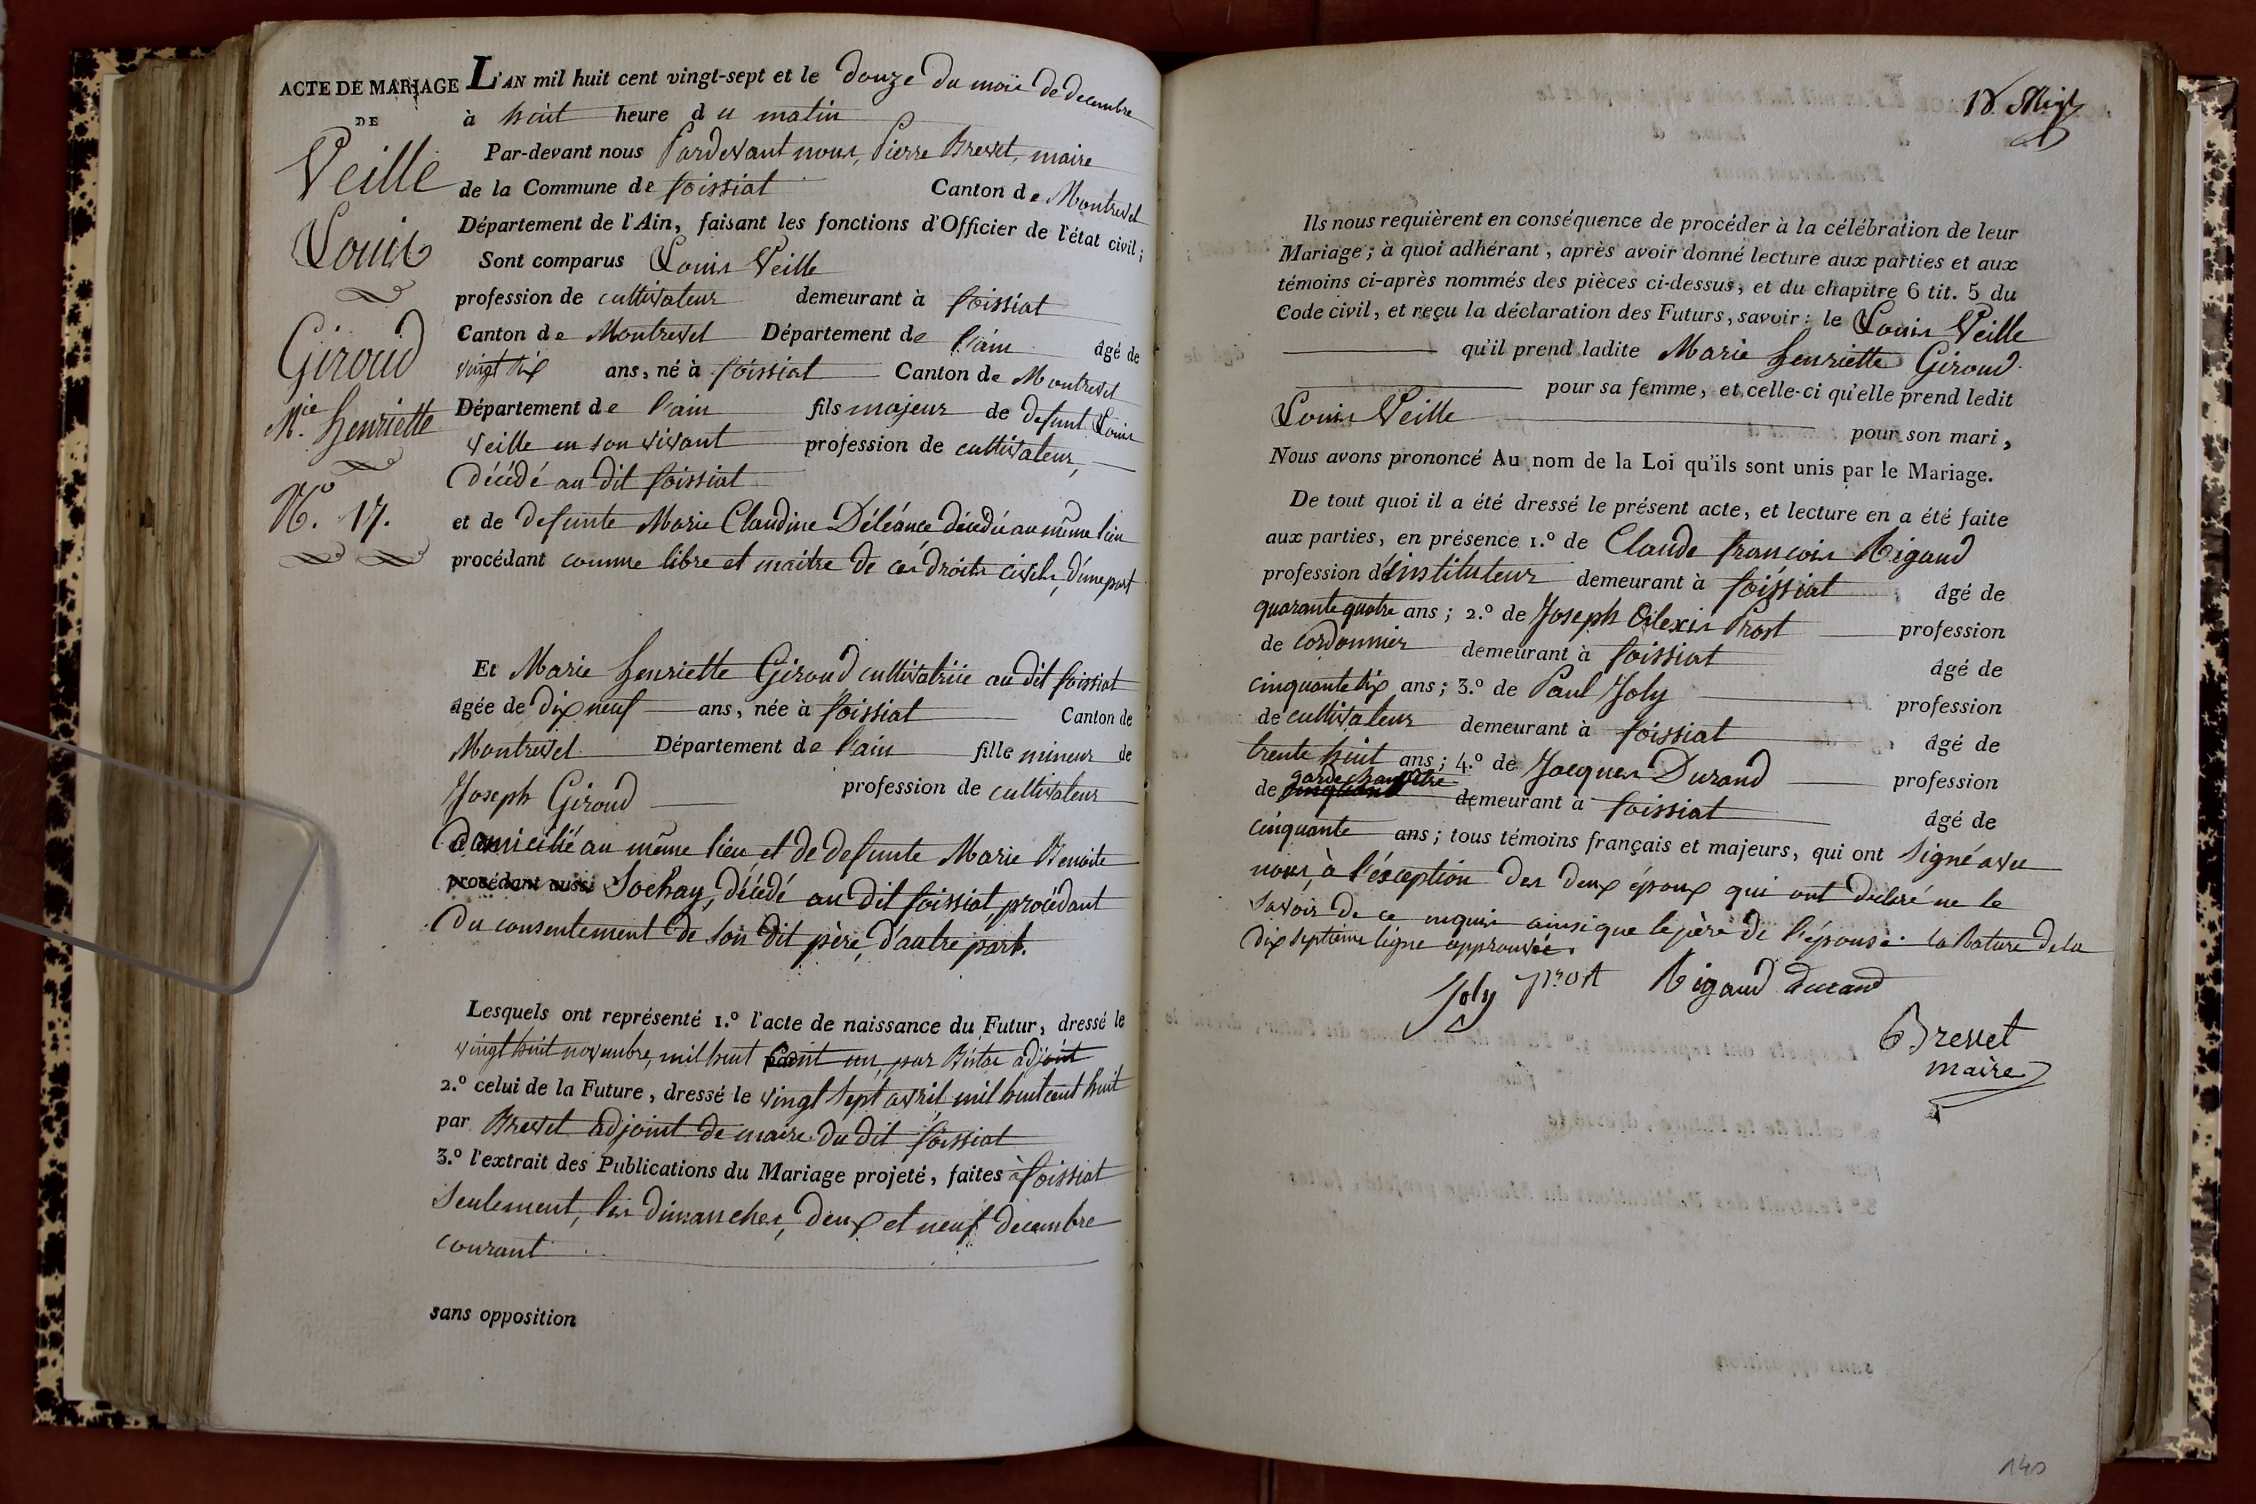 ACTE DE MARIAGE
DE
Veille
Louis
Giroud
Mie. henriette
No. 17.
L'AN mil huit cent vingt-sept et le douze du mois de decembre
à huit heure du matin
Par-devant nous Pardevant nous, Pierre Brevet, maire
de la Commune de foissiat Canton de Montrevel
Département de l'Ain, faisant les fonctions d'Officier de l'état civil;
Sont comparus Louis Veille
profession de cultivateur demeurant à foissiat
Canton de Montrevel Département de l'ain âgé de
vingt six ans, né à foissiat Canton de Montrevel
Département de l'ain fils majeur de defunt Louis
veille en son vivant profession de cultivateur,
décédé au dit foissiat
et de defunte Marie Claudine Déléance décédée au même lieu
procédant comme libre et maitre de ces droits civils, d'une part
Et Marie henriette Giroud cultivatrice au dit foissiat
âgée de dix neuf ans, née à foissiat Canton de
Montrevel Département de l'ain fille mineur de
Joseph Giroud profession de cultivateur
domicilié au même lieu et de defunte Marie Benoite
procédant aussi Sochay, décédé au dit foissiat, procédant
du consentement de son dit père, d'autre part.
Lesquels ont représenté 1.º l'acte de naissance du Futur, dressé le
vingt huit novembre, mil huit cent un, par adjoint
2.º celui de la Future, dressé le vingt sept avril mil huit cent huit
par Brevet adjoint de maire du dit foissiat
3.º l'extrait des Publications du Mariage projeté, faites à foissiat
seulement, les dimanches, deux et neuf decembre
courant
sans opposition
18.
Ils nous requièrent en conséquence de procéder à la célébration de leur
Mariage; à quoi adhérant, après avoir donné lecture aux parties et aux
témoins ci-après nommés des pièces ci-dessus, et du chapitre 6 tit. 5 du
Code civil, et reçu la déclaration des Futurs, savoir: le Louis Veille
qu'il prend ladite Marie henriette Giroud
pour sa femme, et celle-ci qu'elle prend ledit
Louis Veille pour son mari,
Nous avons prononcé Au nom de la Loi qu'ils sont unis par le Mariage.
De tout quoi il a été dressé le présent acte, et lecture en a été faite
aux parties, en présence 1.º de Claude francois Rigaud
profession d'instituteur demeurant à foissiat âgé de
quarante quatre ans; 2.º de Joseph Alexis Prost profession
de cordonnier demeurant à foissiat âgé de
cinquante six ans; 3.º de Paul Joly profession
de cultivateur demeurant à foissiat âgé de
trente huit ans; 4.º de Jacques Durand profession
de garde champêtre demeurant à foissiat âgé de
cinquante ans; tous témoins français et majeurs, qui ont signé avec
nous, à l'éxception des deux époux qui ont déclaré ne le
savoir de ce requis ainsi que le père de l'épouse. la Rature de la
dix septième ligne approuvée.
Joly prost Rigaud durand
Brevet
maire
140